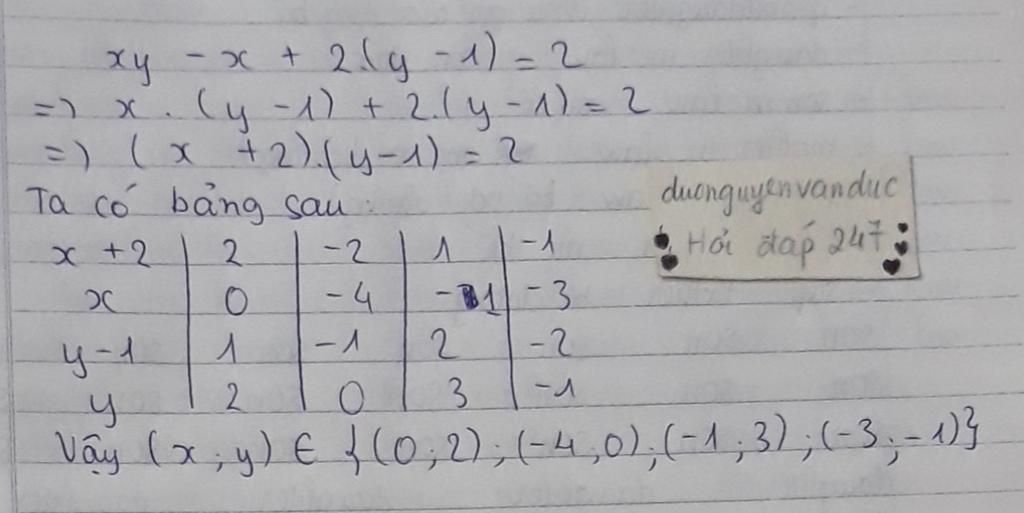 xy - x + 2.(y - 1) = 2
=> x . (y - 1) + 2.(y - 1) = 2
=> (x + 2).(y - 1) = 2
Ta có bảng sau
duonguyenvanduc
Hỏi đáp 247
x + 2 | 2 | -2 | 1 | -1
x | 0 | -4 | -1 | -3
y - 1 | 1 | -1 | 2 | -2
y | 2 | 0 | 3 | -1
Vậy (x ; y) ∈ {(0 ; 2) ; (-4 ; 0) ; (-1 ; 3) ; (-3 ; -1)}